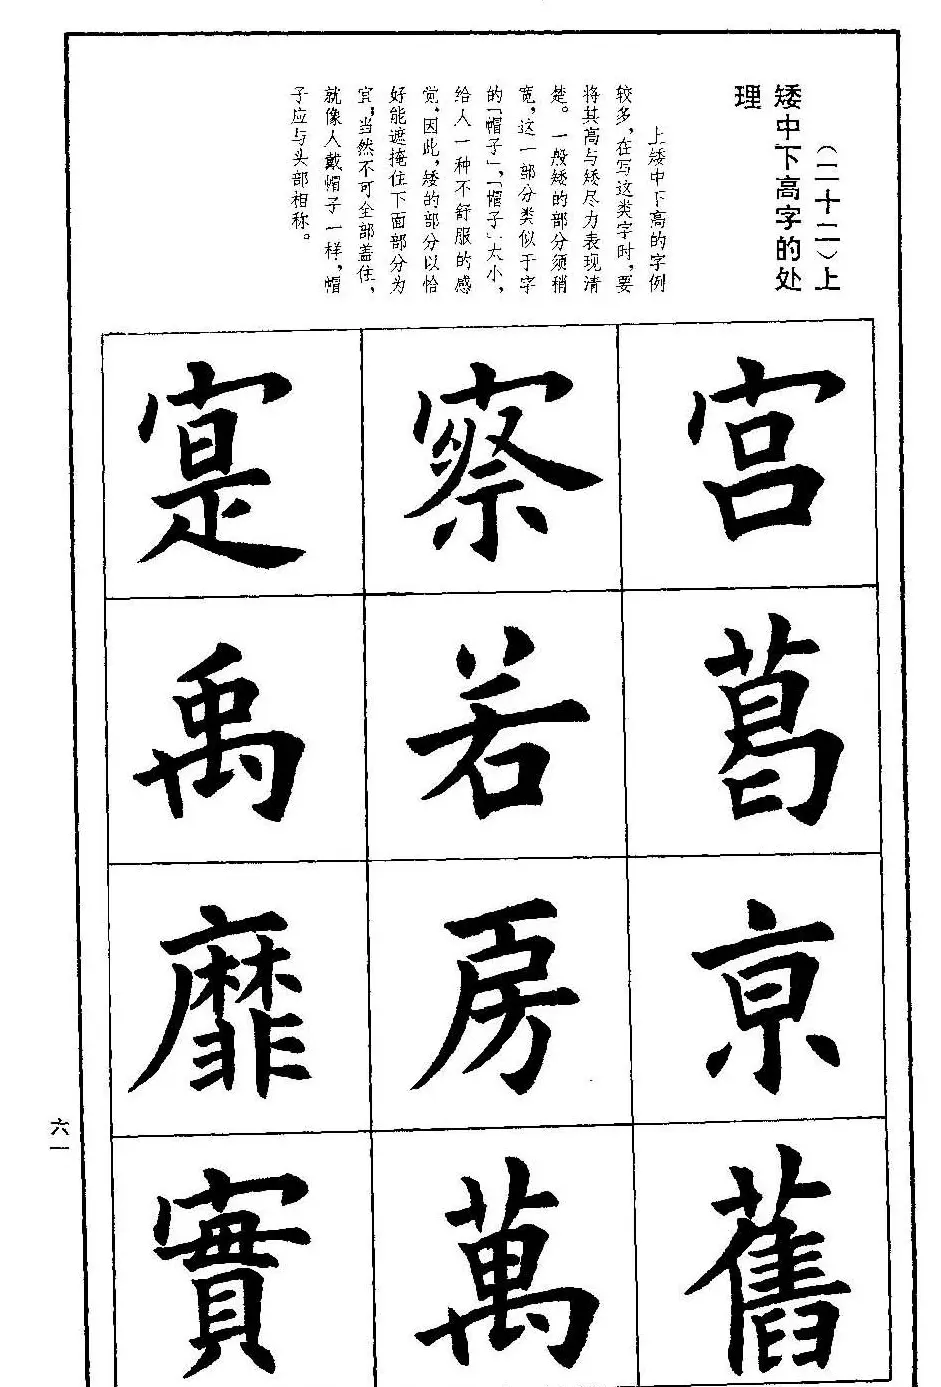 （二十二）上
矮中下高字的处
理
上矮中下高的字例
较多，在写这类字时，要
将其高与矮尽力表现清
楚。一般矮的部分须稍
宽，这一部分类似于字
的「帽子」，「帽子」大小，
给人一种不舒服的感
觉，因此，矮的部分以恰
好能遮掩住下面部分为
宜，当然不可全部盖住，
就像人戴帽子一样，帽
子应与头部相称。
宫
葛
京
舊
察
若
房
萬
寔
禹
靡
實
六一